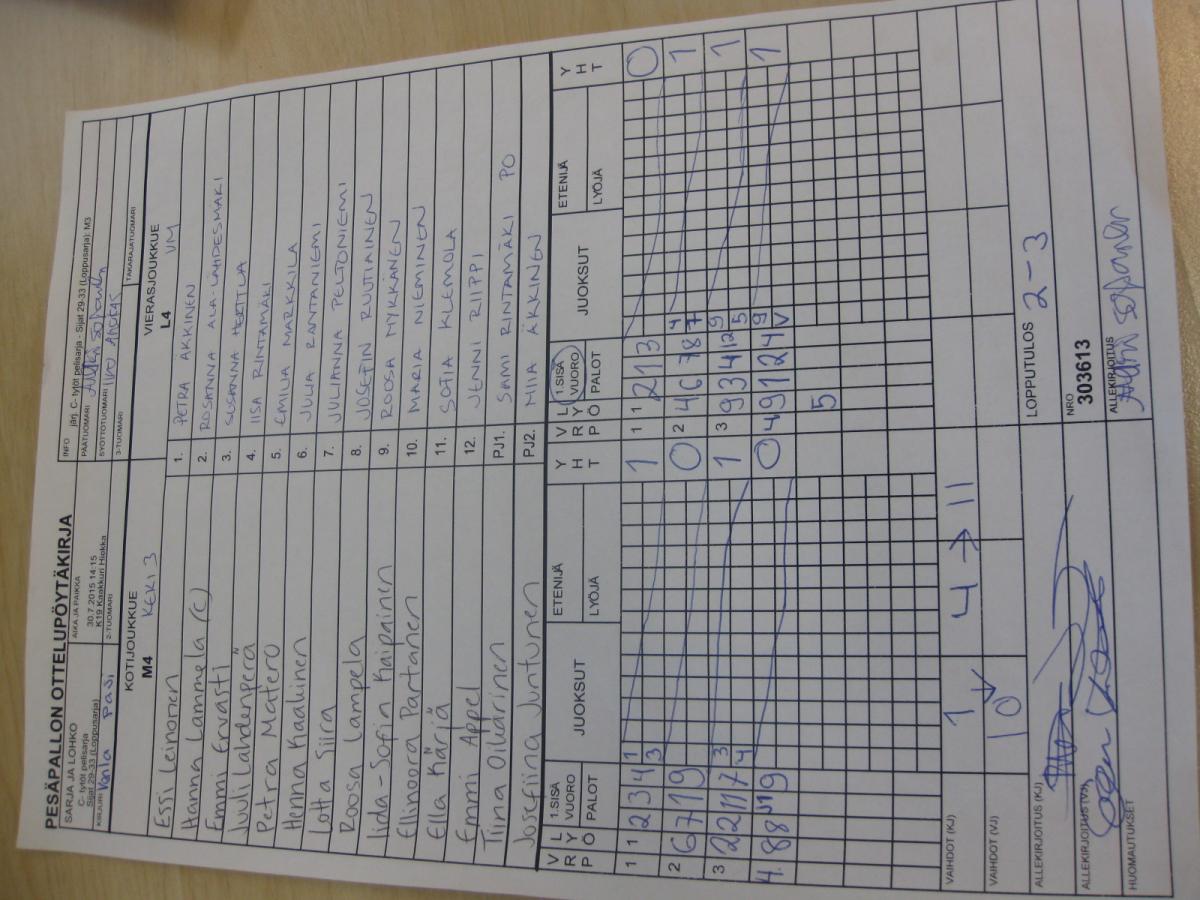 PESÄPALLON OTTELUPÖYTÄKIRJA
SARJA JA LOHKO
C- tytöt pelisarja
Sijat 29-33 (Loppusarja)
AIKA JA PAIKKA
30.7.2015 14:15
K19 Kaakkuri Hiekka
INFO järj. C- tytöt pelisarja - Sijat 29-33 (Loppusarja): M3
PÄÄTUOMARI
SYÖTTÖTUOMARI
KIRJURI Pasi
2-TUOMARI
3-TUOMARI
TAKARAJATUOMARI
KOTIJOUKKUE
M4 KEKI 3
VIERASJOUKKUE
L4 VM
Essi Leinonen
1. PETRA ÄKKINEN
Hanna Lammela (C)
2. ROSANNA ALA-LÄHDESMÄKI
Emmi Ervasti
3. SUSANNA HERTTUA
Juuli Lahdenperä
4. IISA RINTAMÄKI
Petra Matero
5. EMILIA MARKKILA
Henna Kaakinen
6. JULIA RANTANIEMI
Lotta Siira
7. JULIANNA PELTONIEMI
Roosa Lampela
8. JOSEFIN RUUTIAINEN
Iida-Sofin Kaipainen
9. ROOSA NYKKÄNEN
Ellinoora Partanen
10. MARIA NIEMINEN
Ella Käriä
11. SOFIA KLEMOLA
Emmi Appel
12. JENNI RIIPPI
Tiina Oikarinen
PJ1. SAMI RINTAMÄKI PO
Josefiina Juntunen
PJ2. MIIA ÄKKINEN
VRP LYÖ 1.SISÄ VUORO PALOT JUOKSUT ETENIJÄ LYÖJÄ YHT
VRP LYÖ 1.SISÄ VUORO PALOT JUOKSUT ETENIJÄ LYÖJÄ YHT
1 1 2 3 4 1 3 1
1 1 2 1 3 0
2 6 7 1 9 0
2 4 6 7 8 4 7 1
3 3 4 1
3 9 3 4 12 9 5 1
4. 0
1
5
VAIHDOT (KJ) 1 4 → 11
VAIHDOT (VJ) 10
LOPPUTULOS 2-3
ALLEKIRJOITUS (KJ)
NRO
303613
ALLEKIRJOITUS (VJ)
ALLEKIRJOITUS
HUOMAUTUKSET